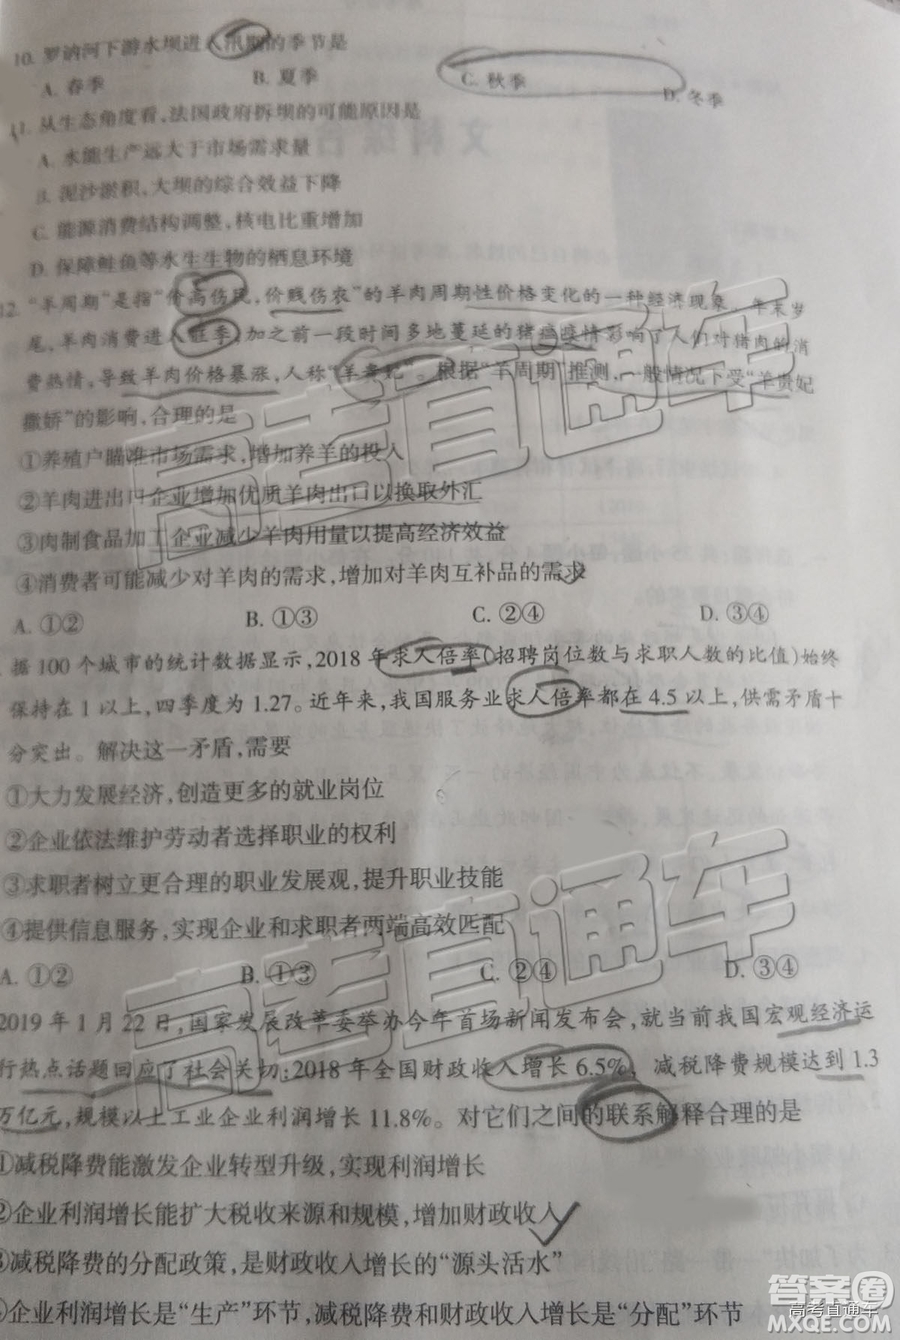 10. 罗讷河下游水坝进入汛期的季节是
A. 春季 B. 夏季 C. 秋季 D. 冬季
11. 从生态角度看,法国政府拆坝的可能原因是
A. 水能生产远大于市场需求量
B. 泥沙淤积,大坝的综合效益下降
C. 能源消费结构调整,核电比重增加
D. 保障鲑鱼等水生生物的栖息环境
12. “羊周期”是指“价高伤民,价贱伤农”的羊肉周期性价格变化的一种经济现象。年末岁
尾,羊肉消费进入旺季,加之前一段时间多地蔓延的猪瘟疫情影响了人们对猪肉的消
费热情,导致羊肉价格暴涨,人称“羊贵妃”。根据“羊周期”推测,一般情况下受“羊贵妃
撒娇”的影响,合理的是
①养殖户瞄准市场需求,增加养羊的投入
②羊肉进出口企业增加优质羊肉出口以换取外汇
③肉制食品加工企业减少羊肉用量以提高经济效益
④消费者可能减少对羊肉的需求,增加对羊肉互补品的需求
A. ①② B. ①③ C. ②④ D. ③④
据 100 个城市的统计数据显示,2018 年求人倍率(招聘岗位数与求职人数的比值)始终
保持在 1 以上,四季度为 1.27。近年来,我国服务业求人倍率都在 4.5 以上,供需矛盾十
分突出。解决这一矛盾,需要
①大力发展经济,创造更多的就业岗位
②企业依法维护劳动者选择职业的权利
③求职者树立更合理的职业发展观,提升职业技能
④提供信息服务,实现企业和求职者两端高效匹配
A. ①② B. ①③ C. ②④ D. ③④
2019 年 1 月 22 日,国家发展改革委举办今年首场新闻发布会,就当前我国宏观经济运
行热点话题回应了社会关切:2018 年全国财政收入增长 6.5%,减税降费规模达到 1.3
万亿元,规模以上工业企业利润增长 11.8%。对它们之间的联系解释合理的是
①减税降费能激发企业转型升级,实现利润增长
②企业利润增长能扩大税收来源和规模,增加财政收入
③减税降费的分配政策,是财政收入增长的“源头活水”
④企业利润增长是“生产”环节,减税降费和财政收入增长是“分配”环节
高考直通车
高考直通车
答案圈
高考直通车
MXQE.COM